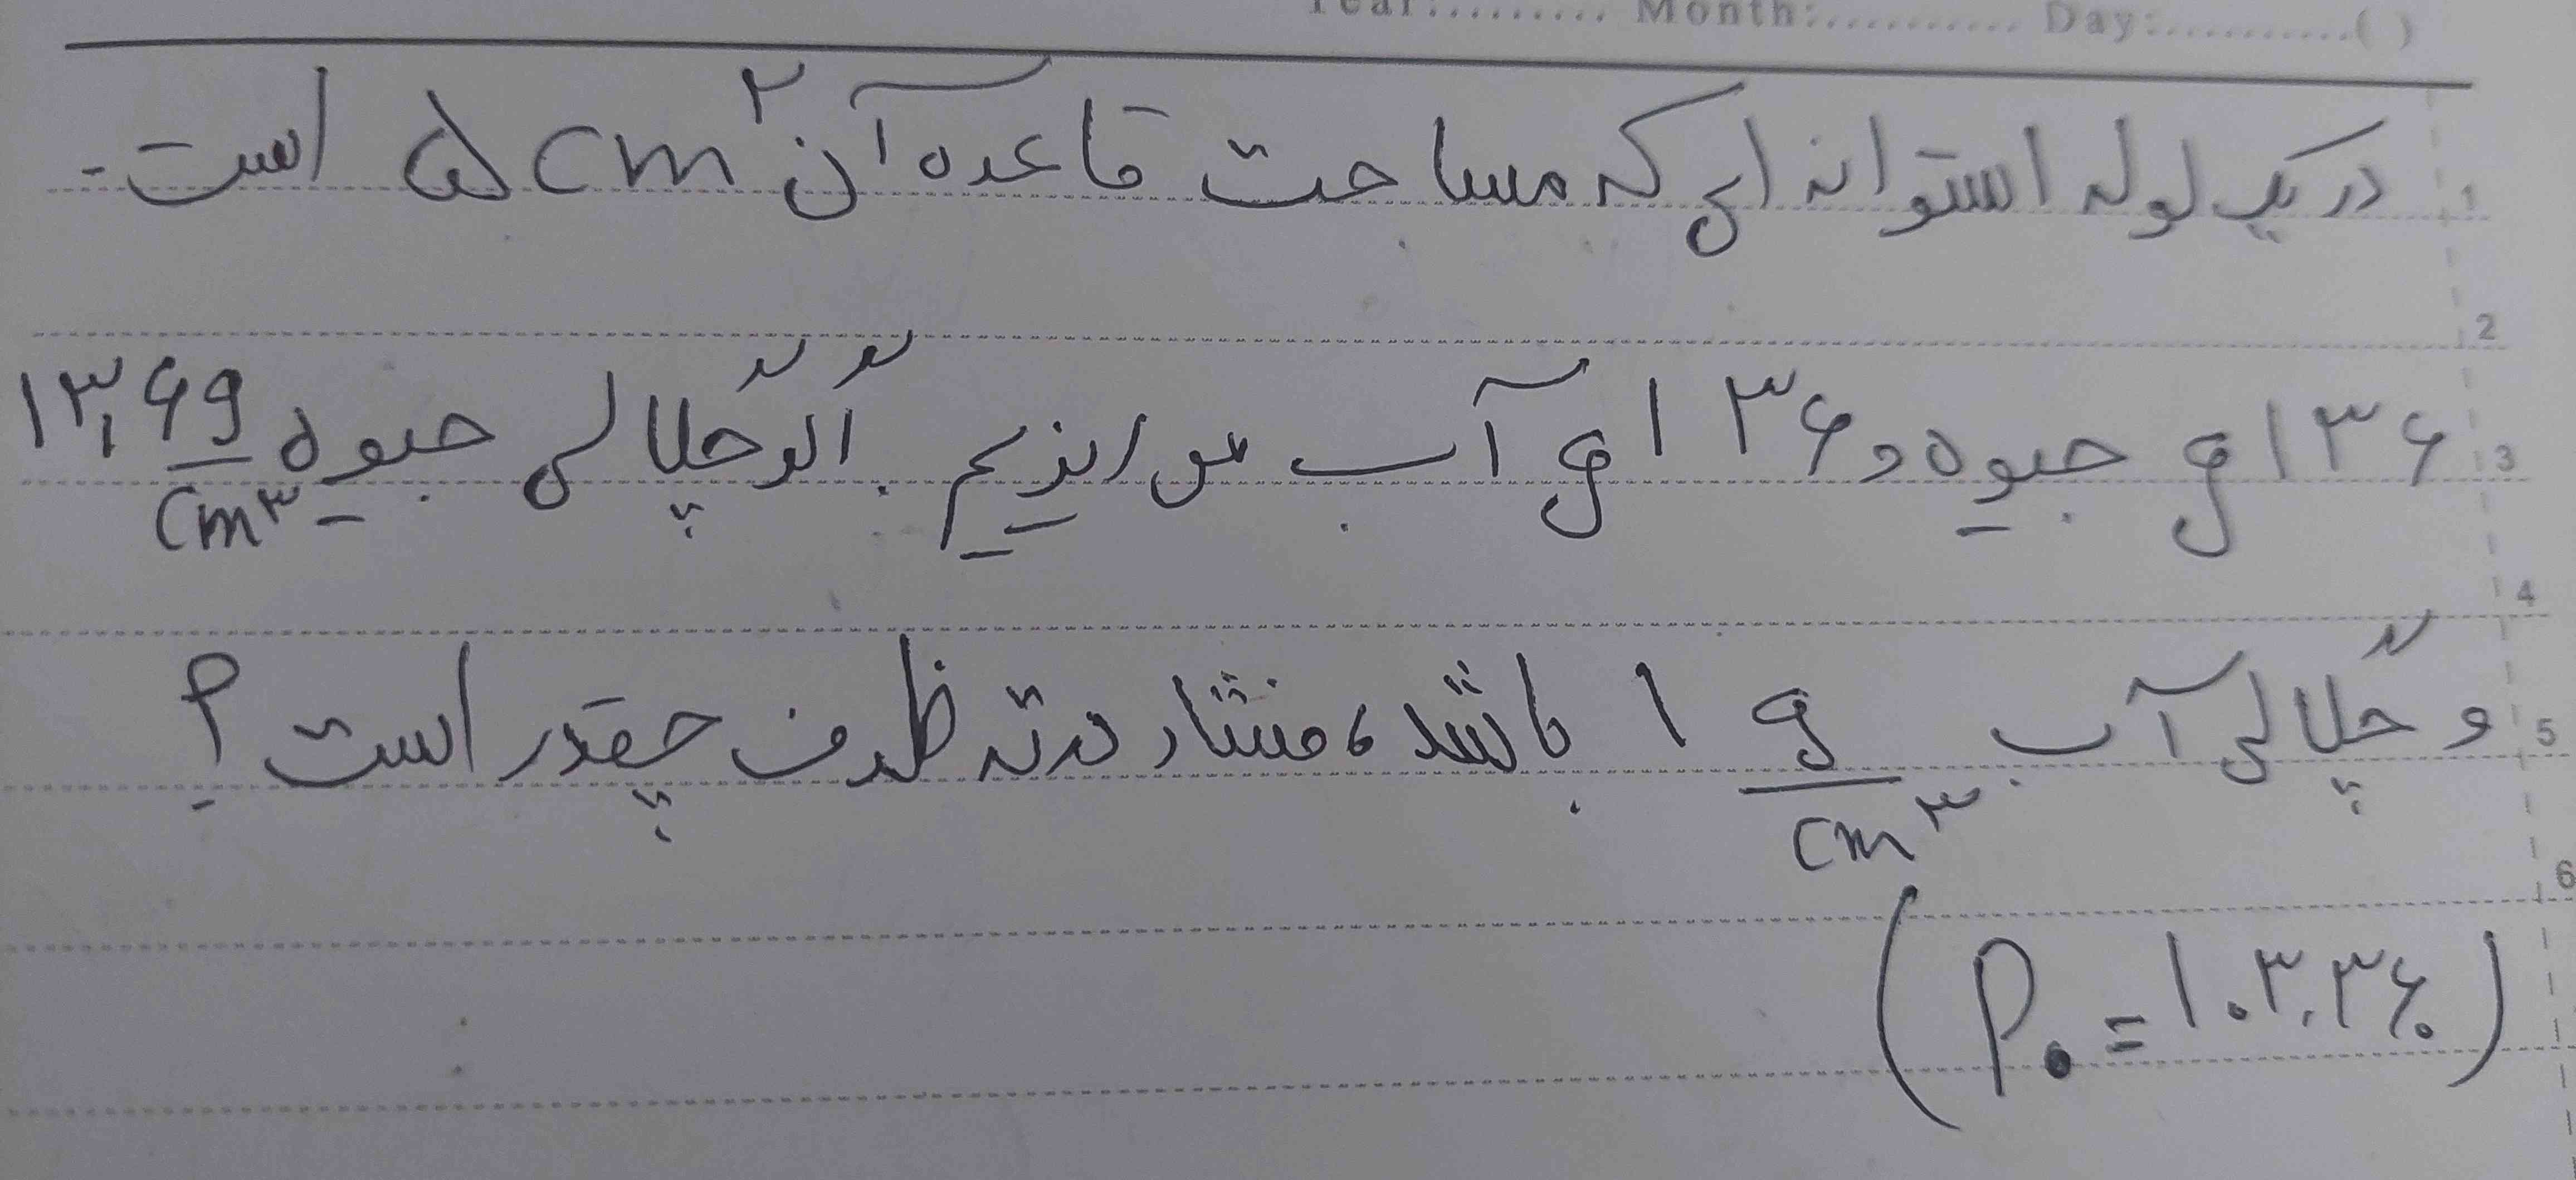 Year:......... Month:........... Day:...........( )
در یک لوله استوانه ای که مساحت قاعده آن ۵ cm^۲ است.
1
2
۱۳۶ g جیوه و ۱۳۶ g آب می ریزیم. اگر چگالی جیوه ۱۳٫۶ g/cm^۳
3
4
و چگالی آب ۱ g/cm^۳ باشد، فشار در ته ظرف چقدر است؟
5
6
(P₀ = ۱۰۳٫۳۶۰)